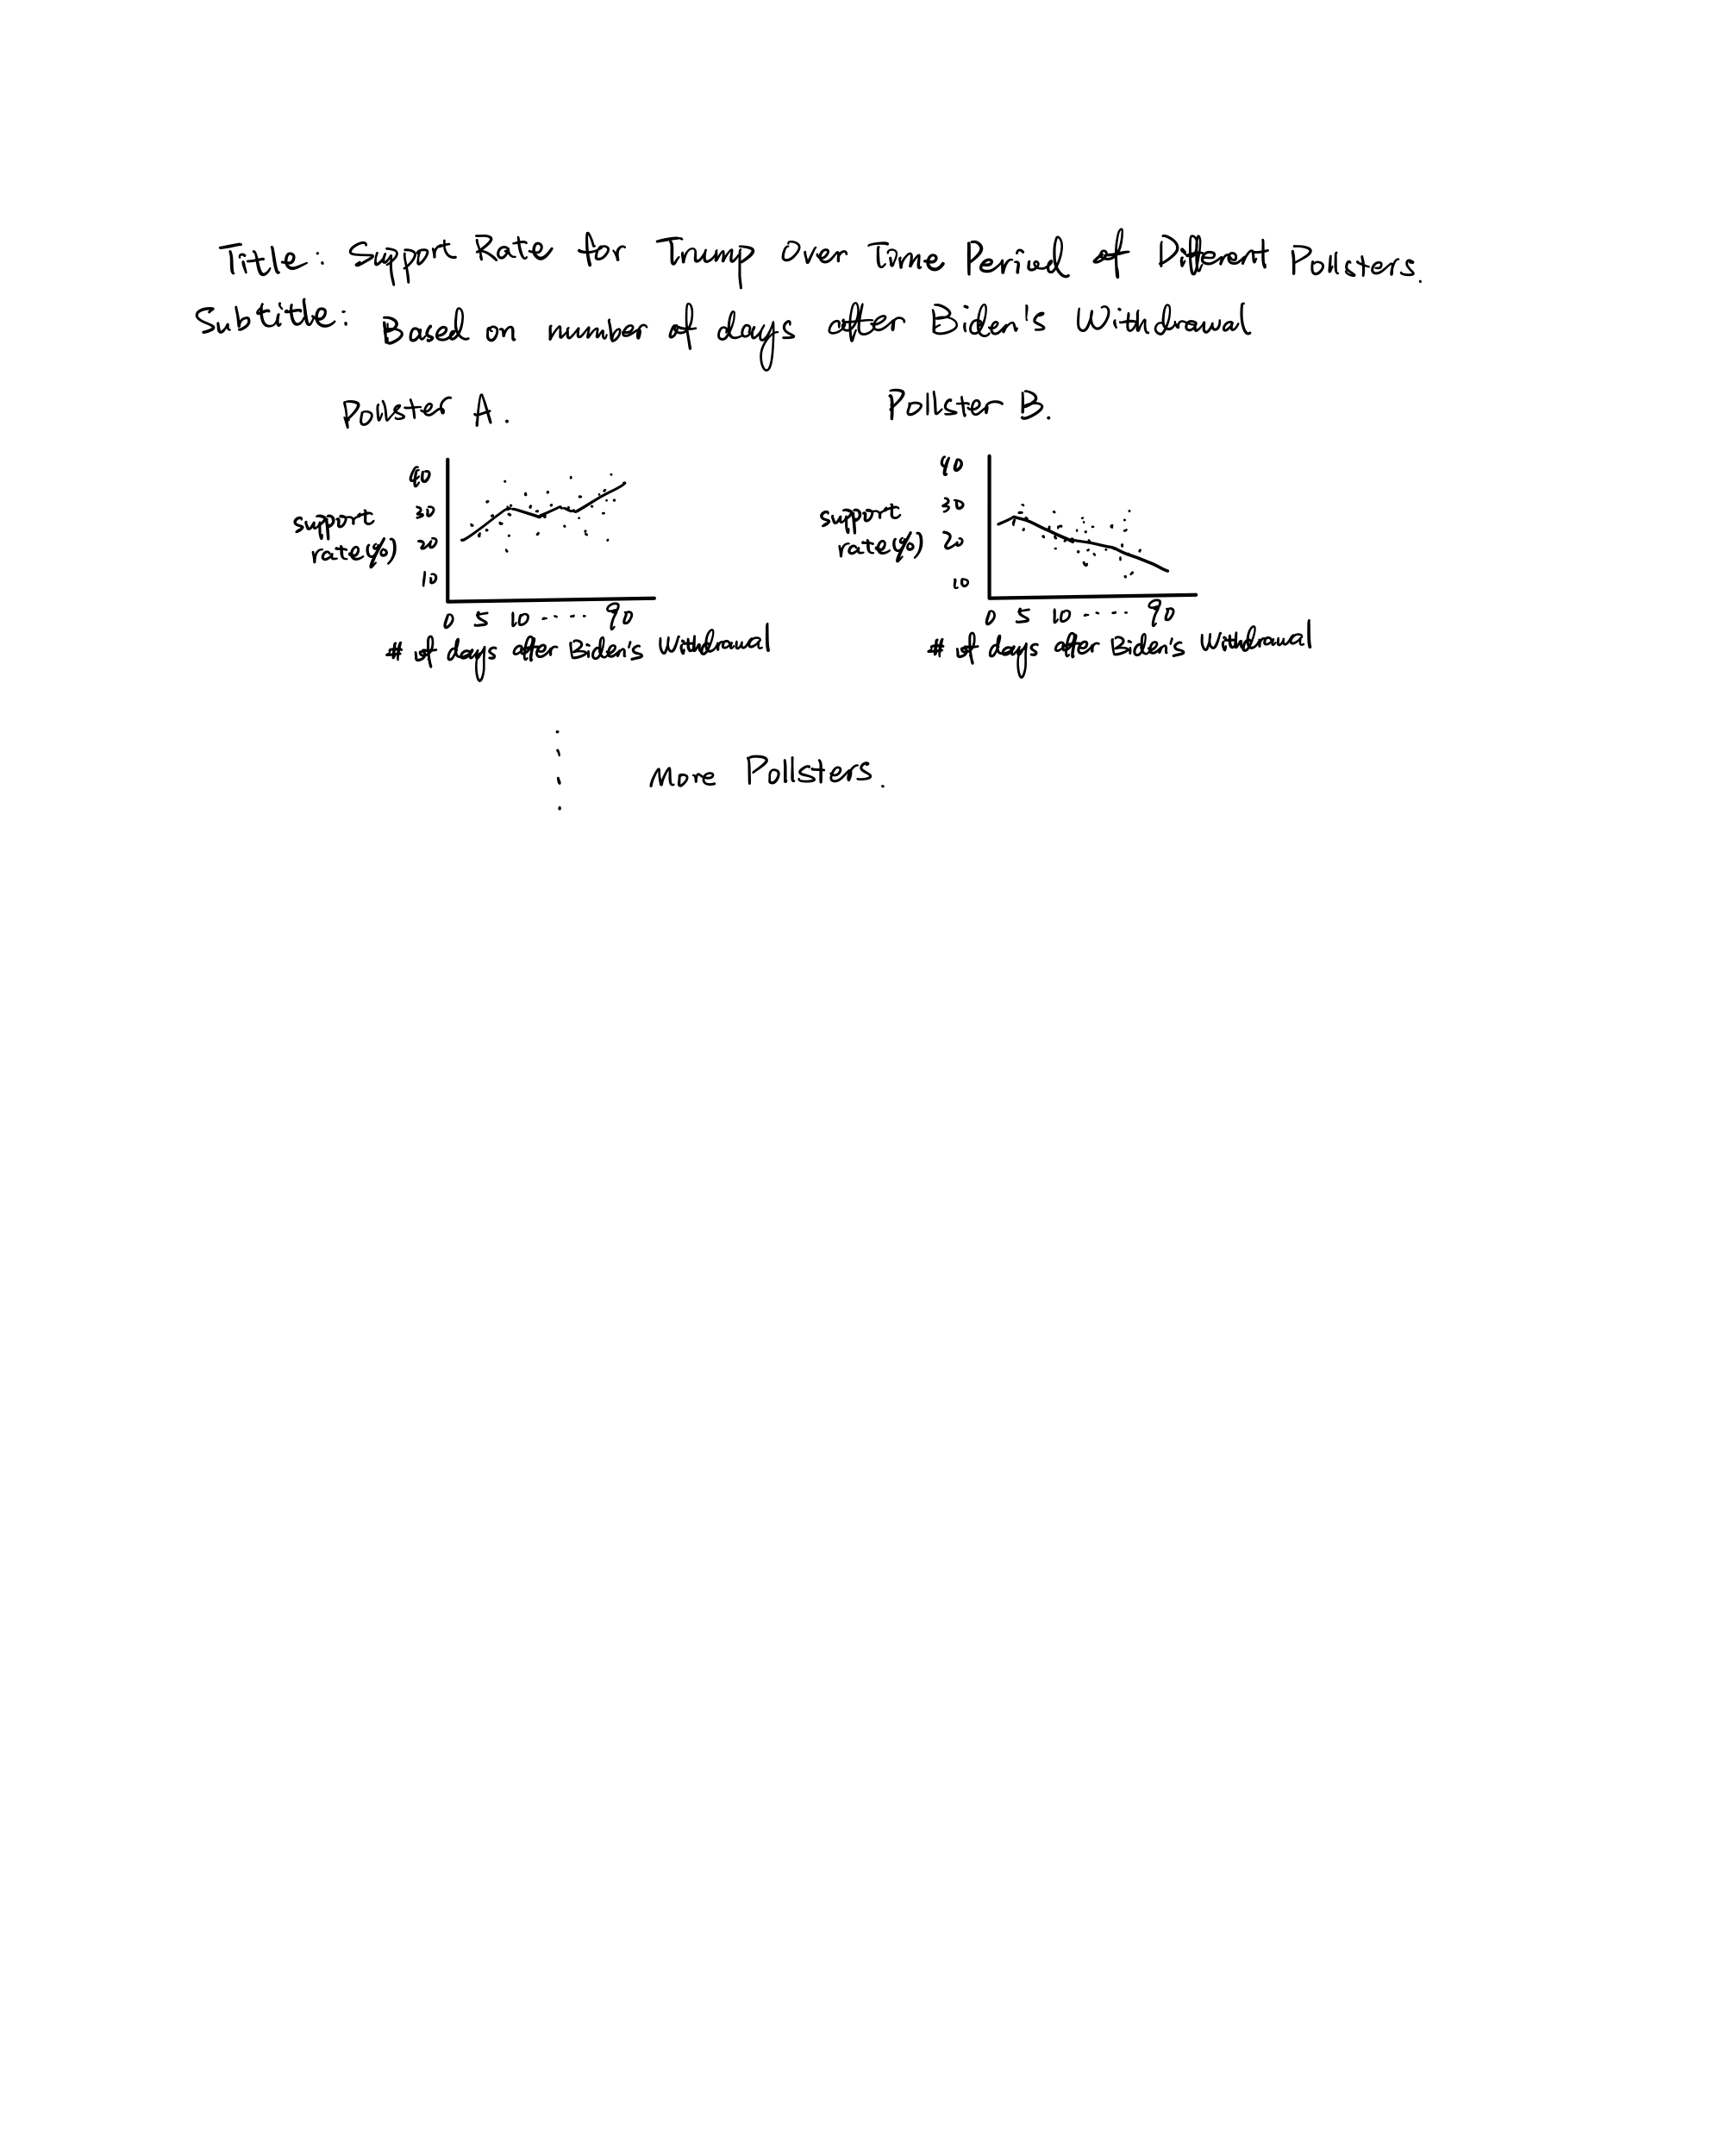 Title: Support Rate for Trump Over Time Period of Different Pollsters.
Subtitle: Based on number of days after Biden's Withdrawal
Pollster A.
40
30
support
rate(%)
20
10
0 5 10 ..... 90
# of days after Biden's Withdrawal
Pollster B.
40
30
support
rate(%)
20
10
0 5 10 ..... 90
# of days after Biden's Withdrawal
More Pollsters.